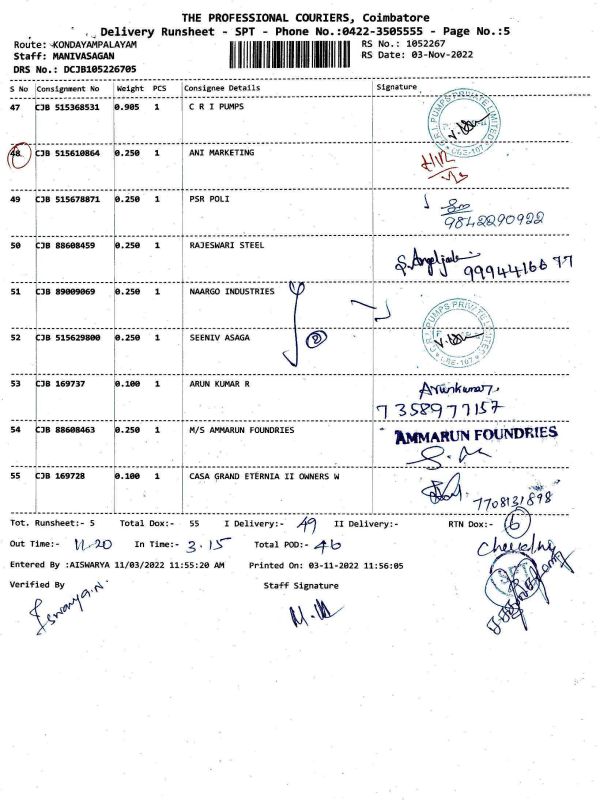 THE PROFESSIONAL COURIERS, Coimbatore
Delivery Runsheet - SPT - Phone No.:0422-3505555 - Page No.:5
Route: KONDAYAMPALAYAM RS No.: 1052267
Staff: MANIVASAGAN RS Date: 03-Nov-2022
DRS No.: DCJB105226705
S No Consignment No Weight PCS Consignee Details Signature
47 CJB 515368531 0.905 1 C R I PUMPS
48 CJB 515610864 0.250 1 ANI MARKETING
49 CJB 515678871 0.250 1 PSR POLI
9842290922
50 CJB 88608459 0.250 1 RAJESWARI STEEL
51 CJB 89009069 0.250 1 NAARGO INDUSTRIES
52 CJB 515629800 0.250 1 SEENIV ASAGA
53 CJB 169737 0.100 1 ARUN KUMAR R
Arunkumar.
7358977157
54 CJB 88608463 0.250 1 M/S AMMARUN FOUNDRIES
AMMARUN FOUNDRIES
55 CJB 169728 0.100 1 CASA GRAND ETERNIA II OWNERS W
7708131898
Tot. Runsheet:- 5 Total Dox:- 55 I Delivery:- 49 II Delivery:- RTN Dox:- 6
Out Time:- 11.20 In Time:- 3.15 Total POD:- 46
Entered By :AISWARYA 11/03/2022 11:55:20 AM Printed On: 03-11-2022 11:56:05
Verified By Staff Signature